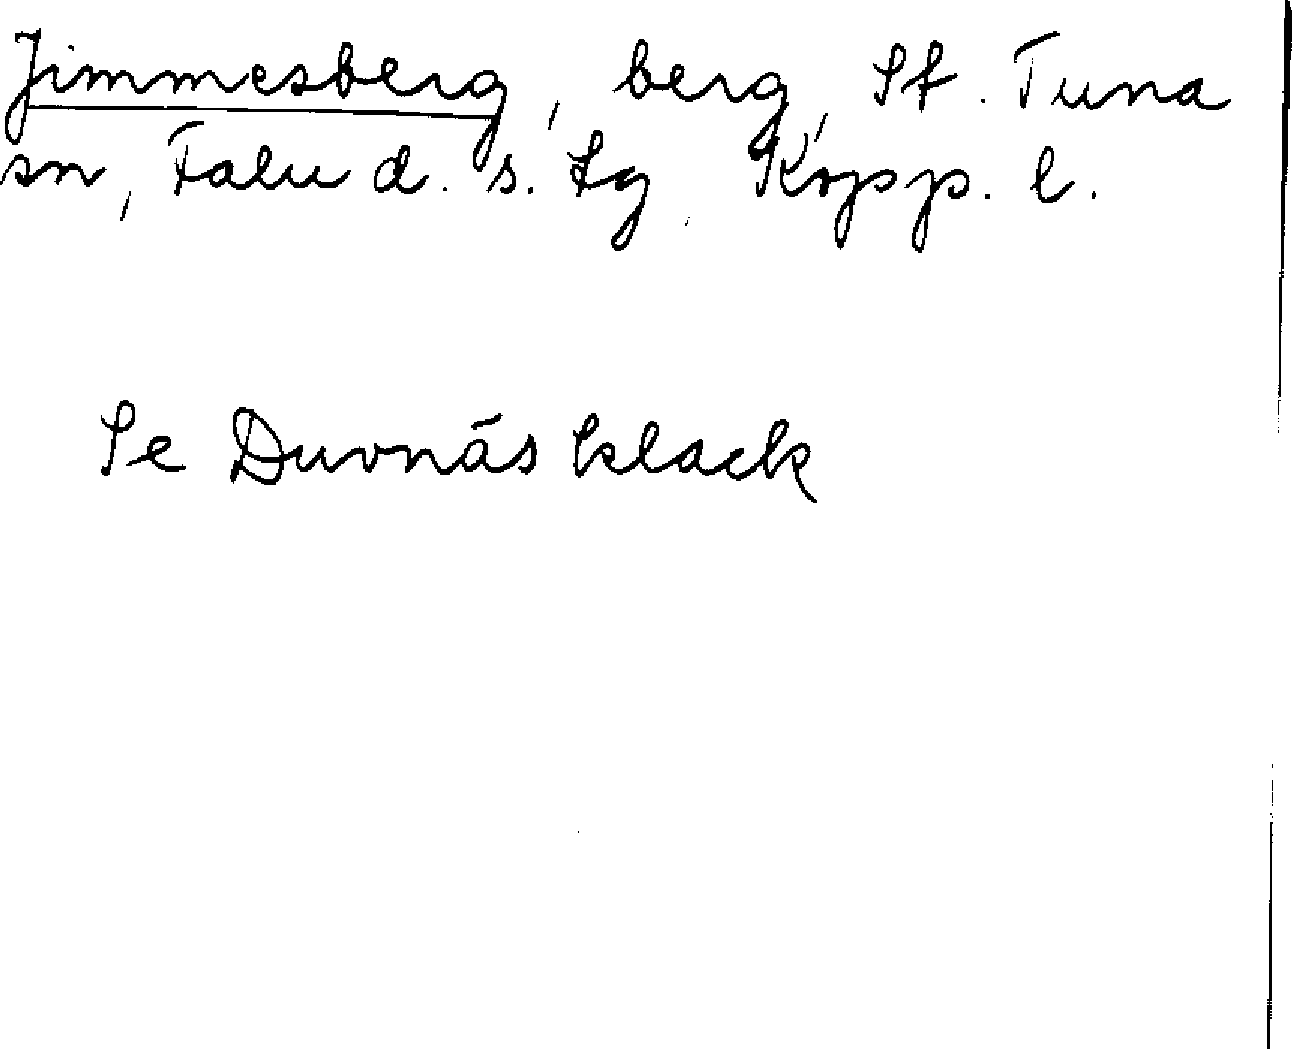 Jimmesberg, berg, St. Tuna
sn, Falu d. s. tg, Kopp. l.
Se Duvnäs klack